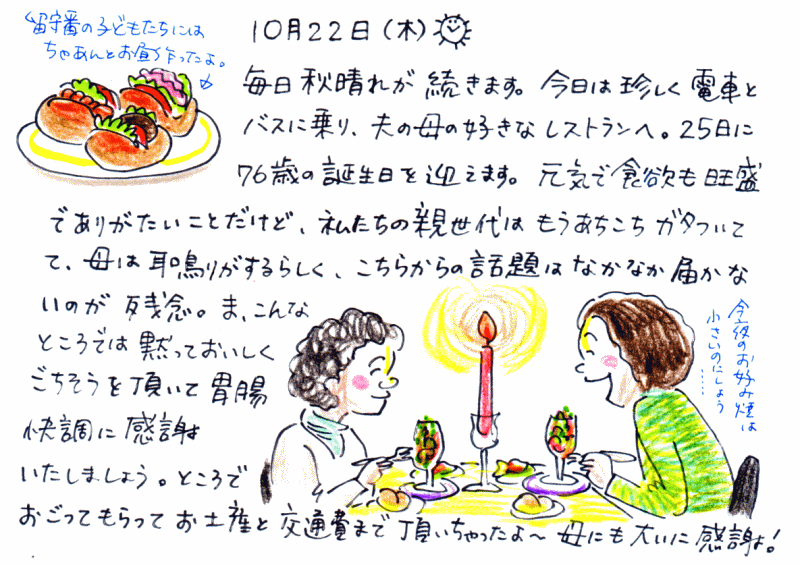 留守番の子どもたちには
ちゃあんとお昼作ったよ。
10月22日(木)
毎日秋晴れが続きます。今日は珍しく電車と
バスに乗り、夫の母の好きなレストランへ。25日に
76歳の誕生日を迎えます。元気で食欲も旺盛
でありがたいことだけど、私たちの親世代はもうあちこちガタついて
て、母は耳鳴りがするらしく、こちらからの話題はなかなか届かな
いのが残念。ま、こんな
ところでは黙っておいしく
ごちそうを頂いて胃腸
快調に感謝
いたしましょう。ところで
おごってもらってお土産と交通費まで頂いちゃったよ〜母にも大いに感謝よ!
今夜のお好み焼は
小さいのにしょう
……